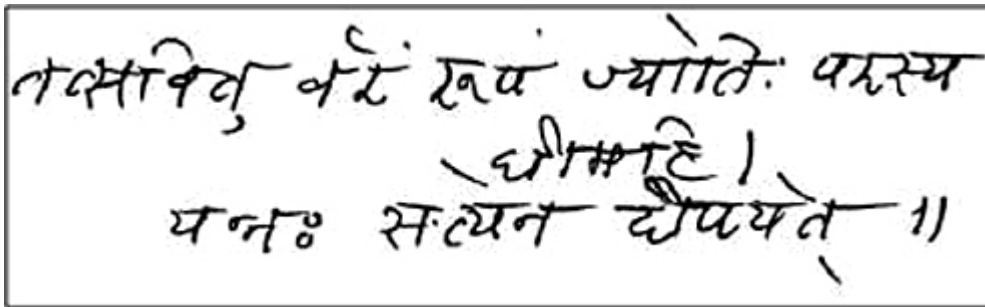 तत्सवितु वरं रूपं ज्योतिः परस्य
धीमहि।
यन्नः सत्येन दीपयेत् ॥